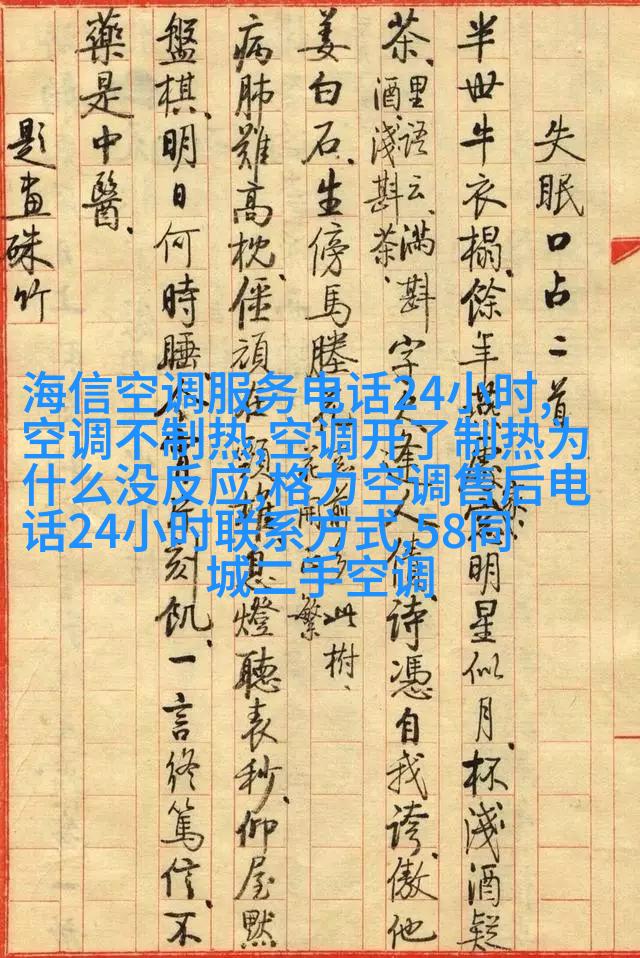 失眠口占二首
半世牛衣榻、餘年燕窠明星似月、杯淺酒疑
茶、里語云、满斟酒、淺斟茶、字逢人倩、诗憑自我誇、傲他
姜白石、生傍馬塍此樹、繁
病肺難高枕、僵頑在頸息燈聽表秒、仰屋默
盤棋、明日何時睡、刻飢、一言終篤信、不
藥是中醫、
题畫硃竹
海信空调服务电话24小时,
空调不制热,空调开了制热为
什么没反应,格力空调售后电
话24小时联系方式,58同
城二手空调